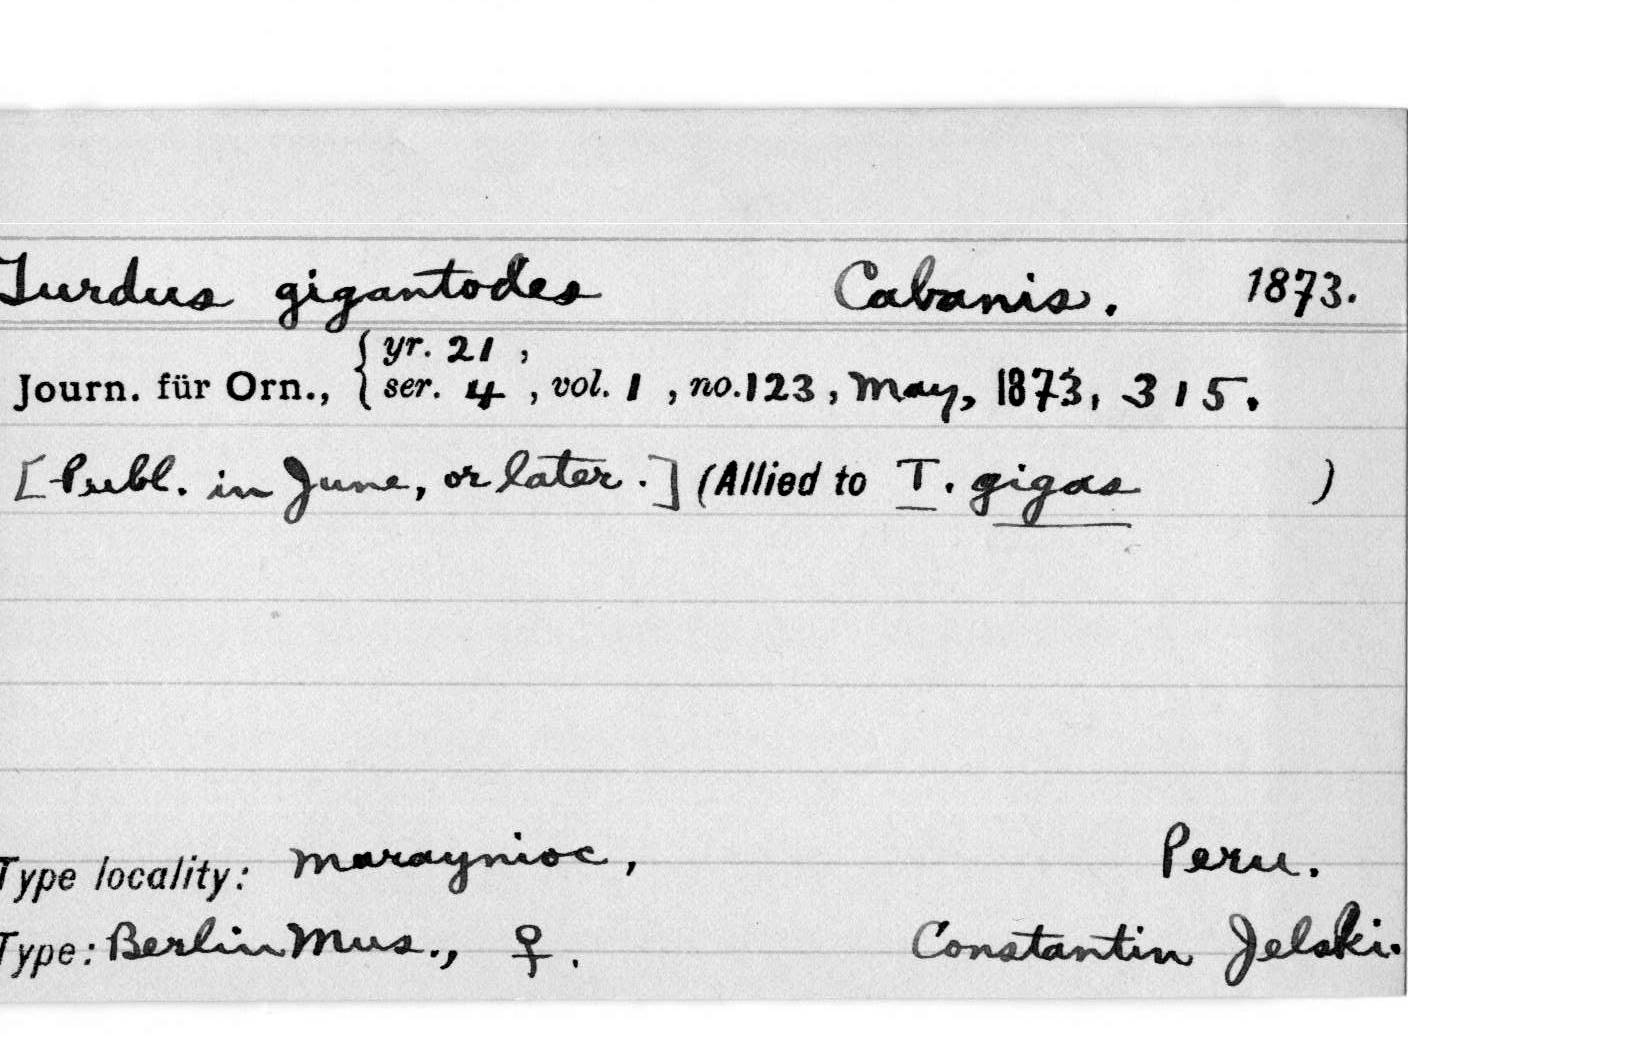 Turdus gigantodes Cabanis. 1873.
yr. 21,
Journ. für Orn., { ser. 4, vol. 1, no. 123, May, 1873, 315.
[Publ. in June, or later.] (Allied to T. gigas )
Type locality: Maraynioc, Peru.
Type: Berlin Mus., ♀. Constantin Jelski.